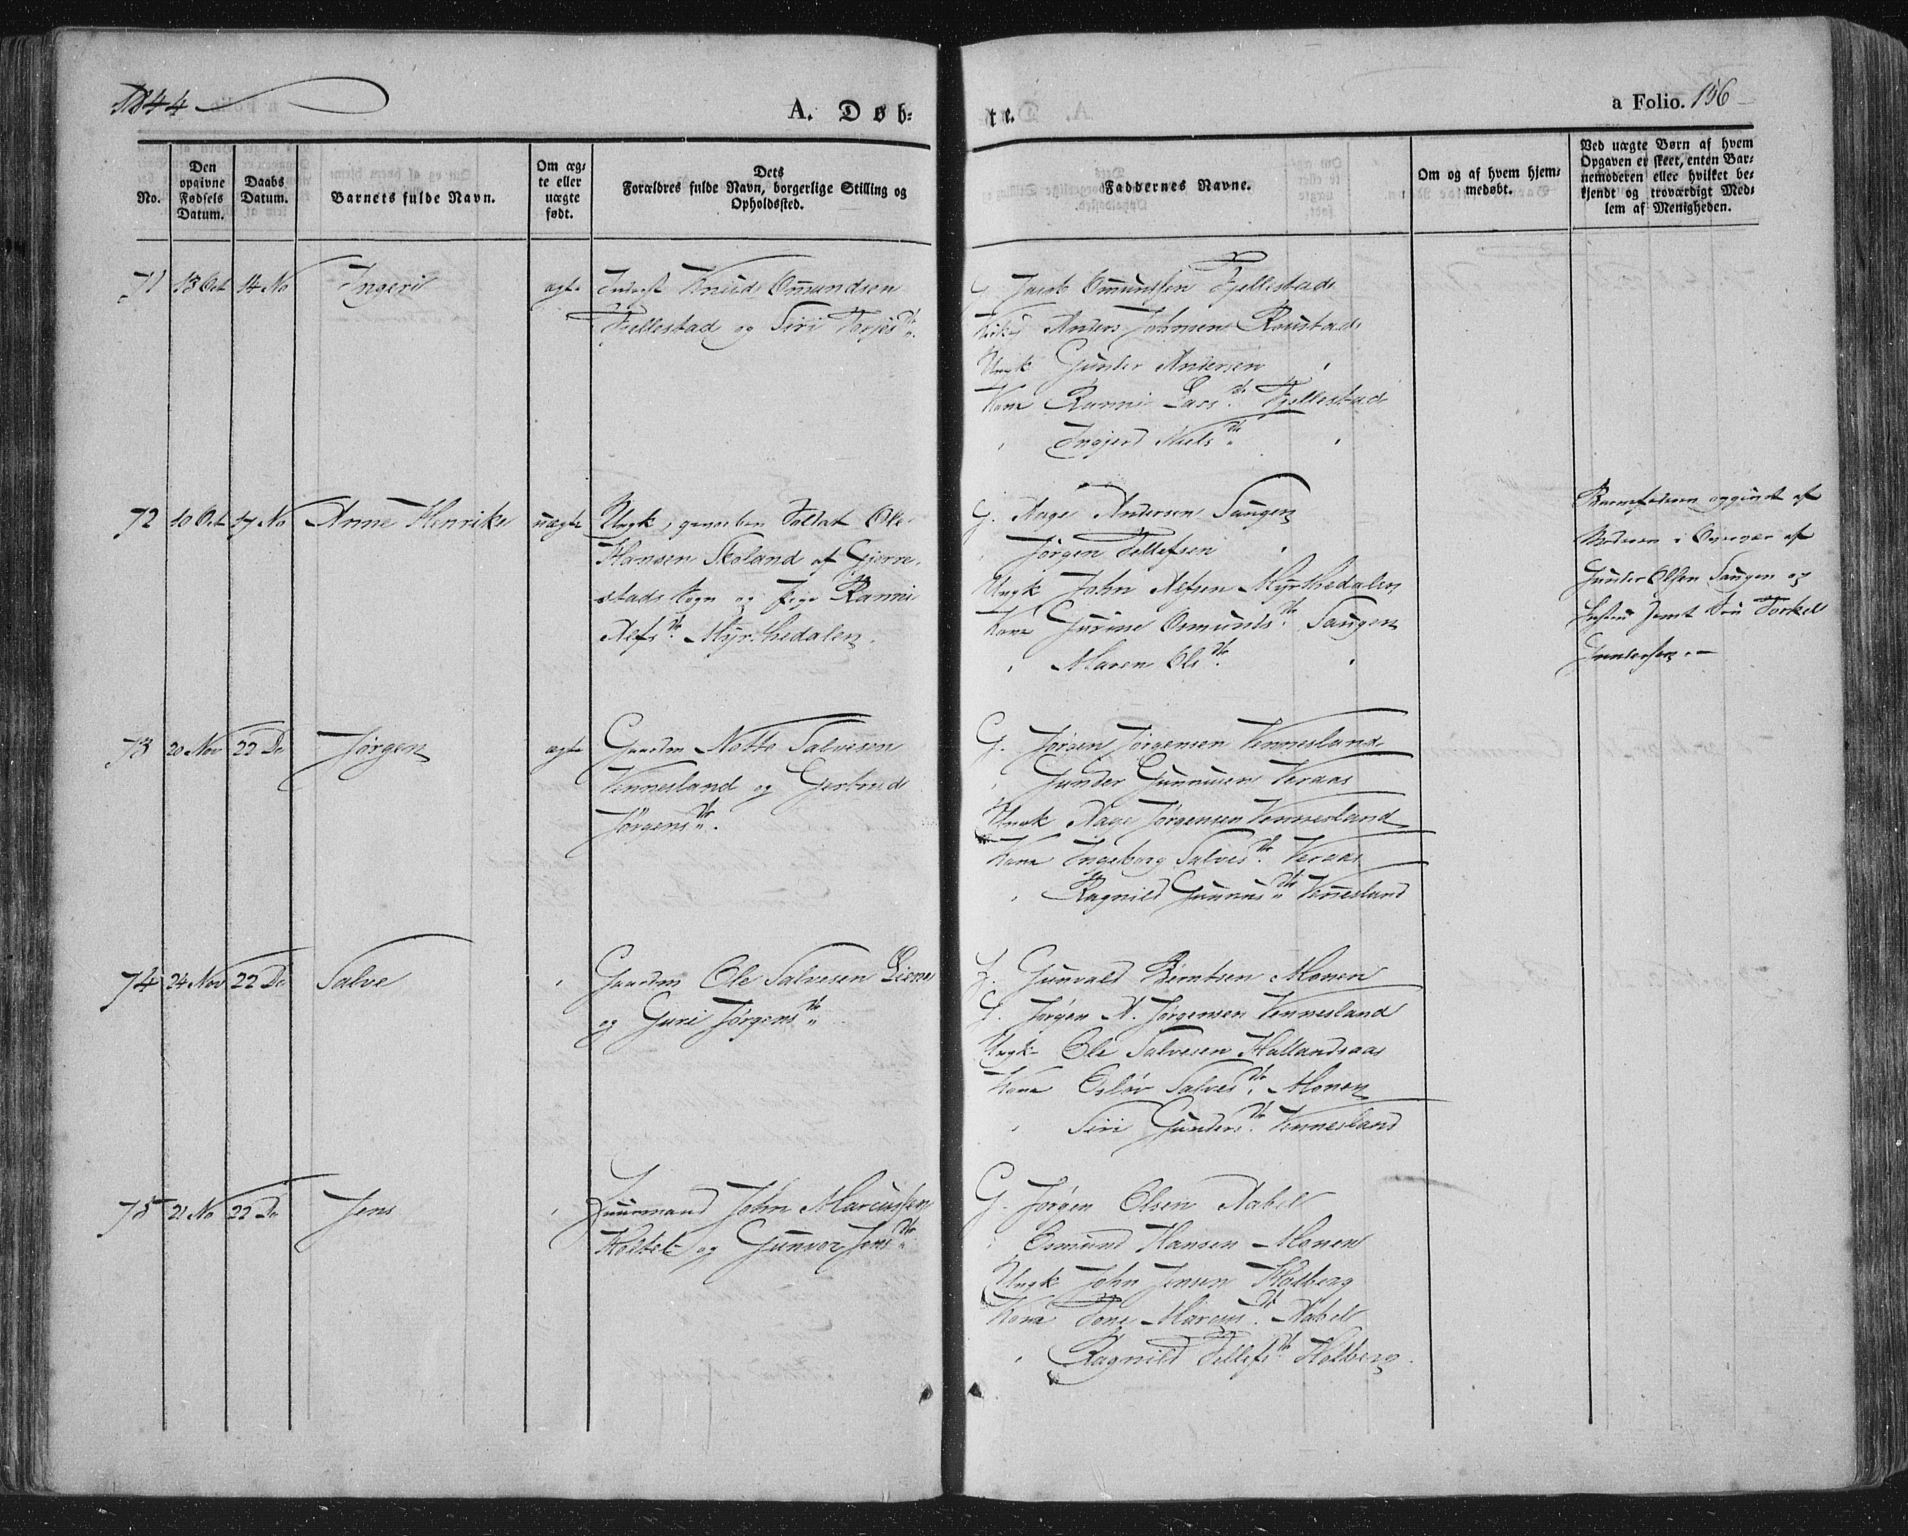 1844
A. Døb-
te.
a Folio. 156
No.
Den opgivne Fødsels Datum.
Daabs Datum.
Barnets fulde Navn.
Om æg-te eller uægte født.
Dets Forældres fulde Navn, borgerlige Stilling og Opholdssted.
Faddernes Navne.
Om og af hvem hjem-medøbt.
Ved uægte Børn af hvem Opgaven er skeet, enten Bar-nemoderen eller hvilket be-kjendt og troværdigt Med-lem af Menigheden.
71 13 Oct 14 No Ingeri ægte Knud Omundsen
Fjellestad og Siri Torjesdtr.
G. Omundsen Fjellestad
Anders Johnsen Roustad
Ungk Gunder Andersen "
Kone Ranni Larsdtr. Fjellestad
" Ingjerd Nielsdtr. "
72 10 Oct 17 No Anne Henrike uægte Ungk, Soldat Ole
Hansen Skoland af Gjerre-
stads Sogn og Pige Ranni
Alfsdtr. Myrthedalen.
G. Aage Andersen Saugen
" Jørgen Tellefsen "
Ungk John Alfsen Myrthedalen
Kone Gurine Osmundsdtr. Saugen
" Maren Olsdtr. "
Barnefaderen opgivet af
Moderen i Overvær af
Gunder Olsen Saugen og
Hustru samt Søn Torkel
Gundersen.
73 20 Nov 22 De Jørgen ægte Gaardm Notto Salvesen
Vennesland og Gertrud
Jørgensdtr.
G. Jørgen Jørgensen Vennesland
" Gunder Gunnusen Veraas
Ungk Aage Jørgensen Vennesland
Kone Ingeborg Salvesdtr. Veraas
" Ragnild Gunnusdtr. Vennesland
74 24 Nov 22 De Salve " Gaardm Ole Salvesen Liene
og Guri Jørgensdtr.
Gunvald Berntsen Monen
G. Jørgen N. Jørgensen Vennesland
Ungk Ole Salvesen Hallandsaas
Kone Osløv Salvesdtr. Monen
" Siri Gundersdtr. Vennesland
75 21 No 22 De Jens " Huusmand John Marcussen
Holtet og Gunvor Jensdtr.
G. Jørgen Olsen Aabel
" Osmund Hansen Monen
Ungk John Jensen Holberg
Kone Tone Marcusdtr. Aabel
" Ragnild Tellefsdtr. Holberg.